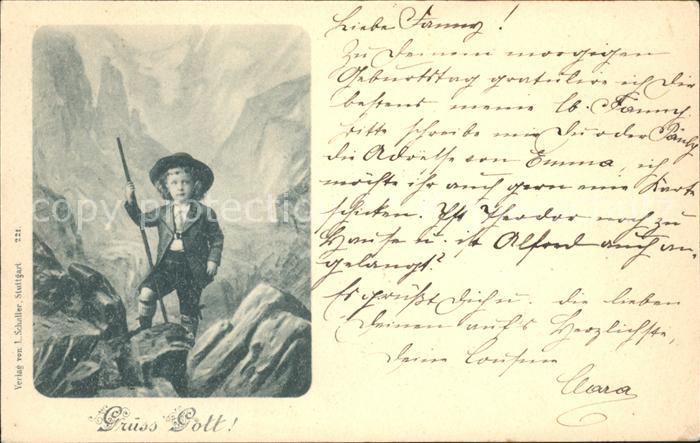 Liebe Fanny!
Zu Deinem morgigen
Geburtstag gratulire ich Dir
bestens meine lb. Fanny.
Bitte schreibe mir Du oder
die Adresse von Emma, ich
möchte ihr auch gern eine Karte
schicken. Ist Theodor noch zu
Hause u. ist Alfred auch an-
gelangt?
Es grüßt Dich u. die lieben
Deinen auf's Herzlichste,
Deine Cousine
Clara
Gruss Gott!
Verlag von L. Schaller, Stuttgart 221.
copyright protected